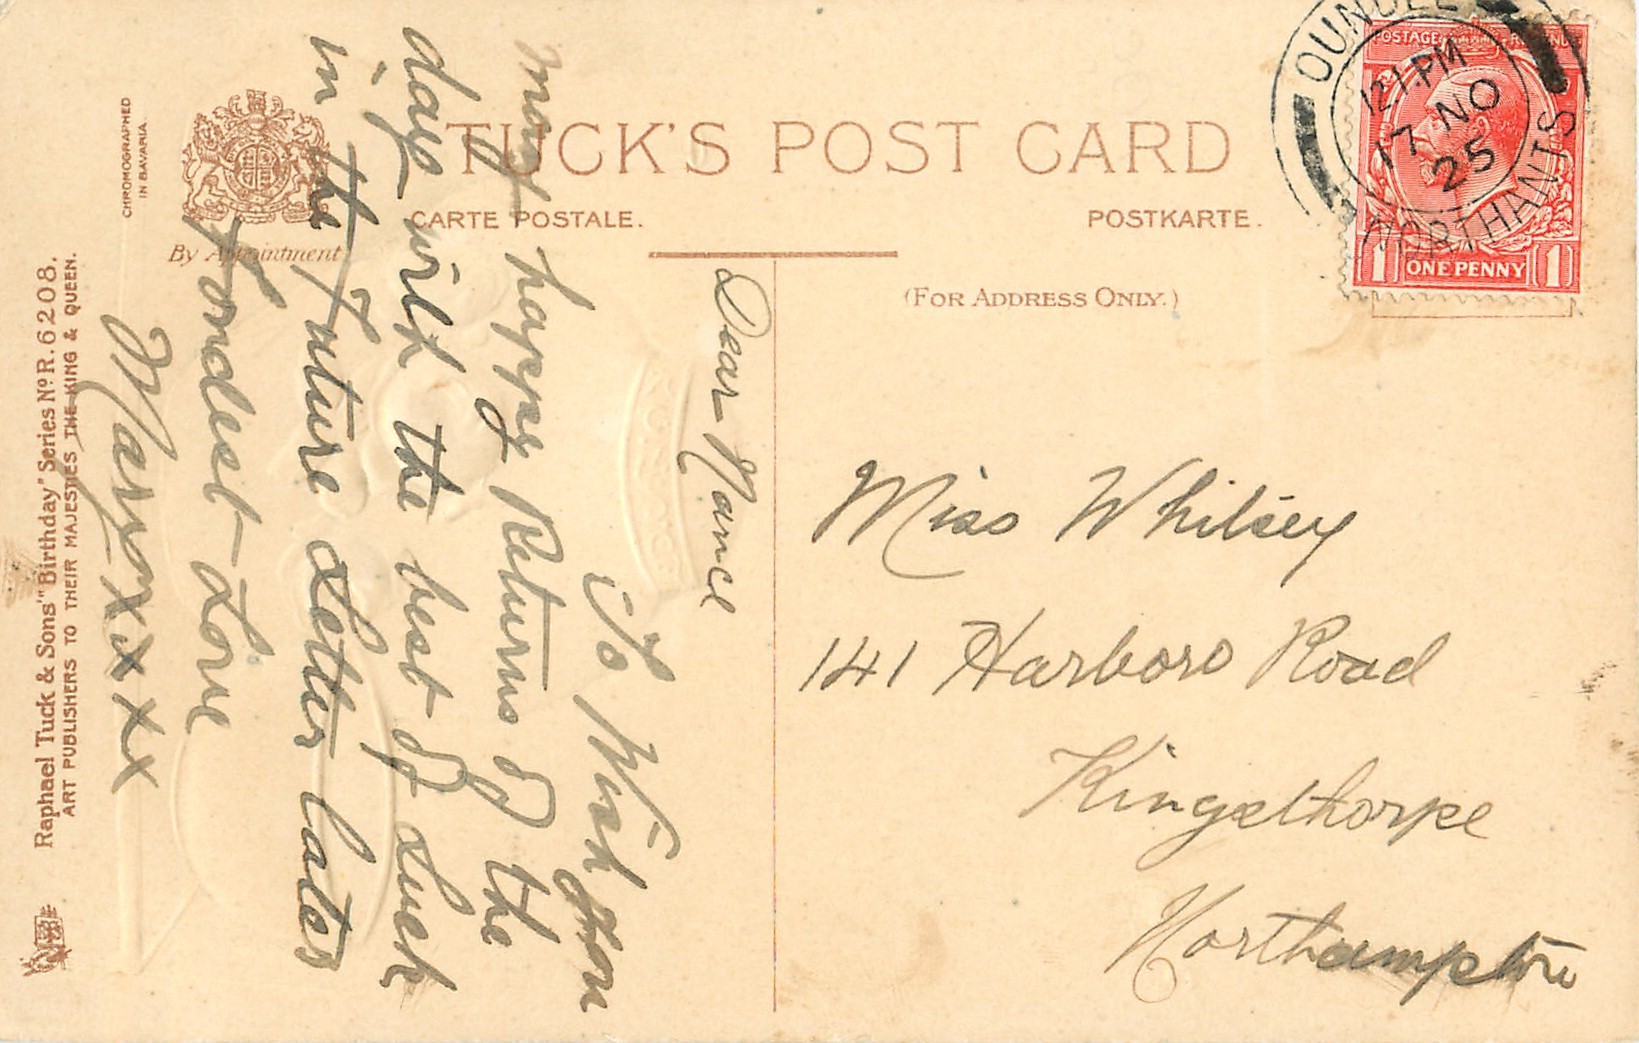 TUCK'S POST CARD
CARTE POSTALE.
POSTKARTE.
(FOR ADDRESS ONLY.)
By Appointment
CHROMOGRAPHED
IN BAVARIA.
Raphael Tuck & Sons' "Birthday" Series Nº R. 6208.
ART PUBLISHERS TO THEIR MAJESTIES THE KING & QUEEN.
POSTAGE REVENUE
1 ONE PENNY 1
OUNDLE
12.1 PM
17 NO
25
NORTHANTS
Dear Nance
To Wish you
many happy Returns of the
day with the best of Luck
in the Future Letter later
Fondest Love
Mary x x x x
Miss Whitsey
141 Harboro Road
Kingsthorpe
Northampton